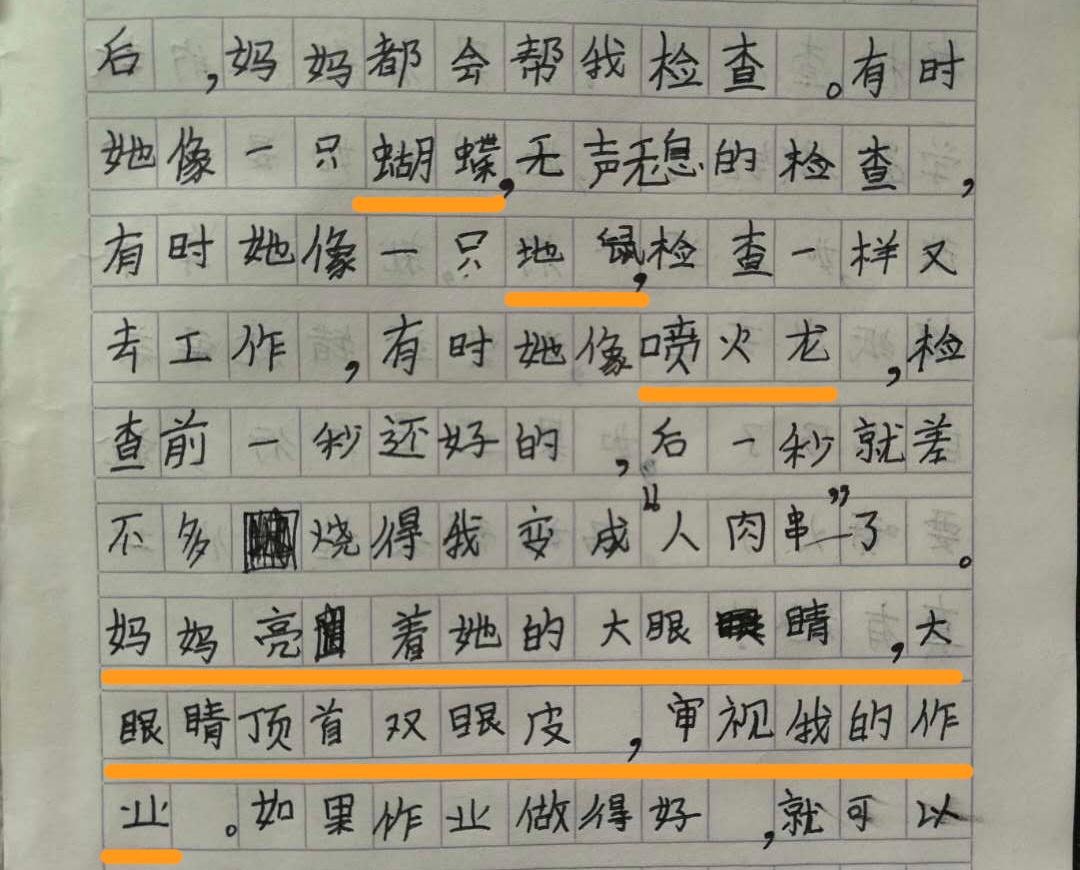 后，妈妈都会帮我检查。有时
她像一只蝴蝶，无声无息的检查，
有时她像一只地鼠，检查一样又
去工作，有时她像喷火龙，检
查前一秒还好的，后一秒就差
不多烧得我变成“人肉串”了。
妈妈亮着她的大眼睛，大
眼睛顶首双眼皮，审视我的作
业。如果作业做得好，就可以